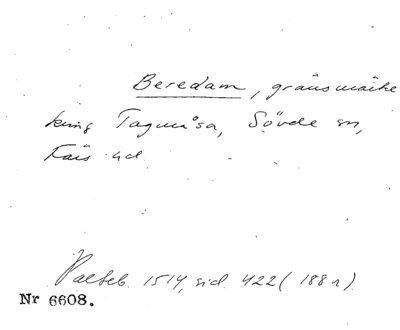 Beredam, gränsmärke
kring Tagmåsa, Sövde sn,
Färs hd.
Palteb. 1514, sid. 422 (188 r).
Nr 6608.